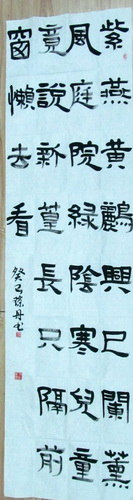 紫燕黃鸝興已闌薰
風庭院綠陰寒兒童
竟說新篁長只隔前
窗懶去看
癸巳